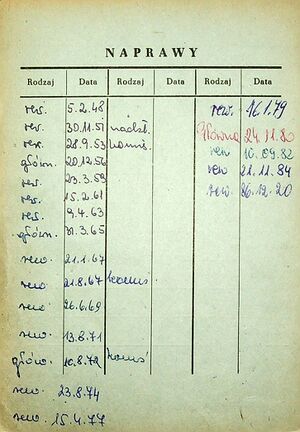 NAPRAWY
Rodzaj Data Rodzaj Data Rodzaj Data
rew. 5.2.48 rew. 16.1.79
rew. 30.11.51 nadzt. Główna 24.11.80
rew. 28.9.53 komis. rew 10.09.82
główn. 20.12.56 rew 21.11.84
rew. 23.3.59 rew. 06.12.20
rew. 15.2.61
rew. 9.4.63
główn. 31.3.65
rew 21.1.67
rew 21.8.67 komis.
rew 26.6.69
rew. 13.8.71
główn. 10.8.72 komis
rew. 23.8.74
rew. 15.4.77